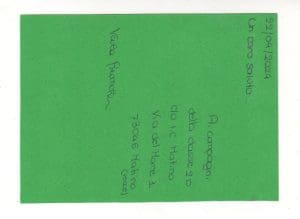 22/04/2024
Un caro saluto.
Ai compagni
della classe 2D
c/o I.C Matino
Via del Mare 2
73046 Matino
(Lecce)